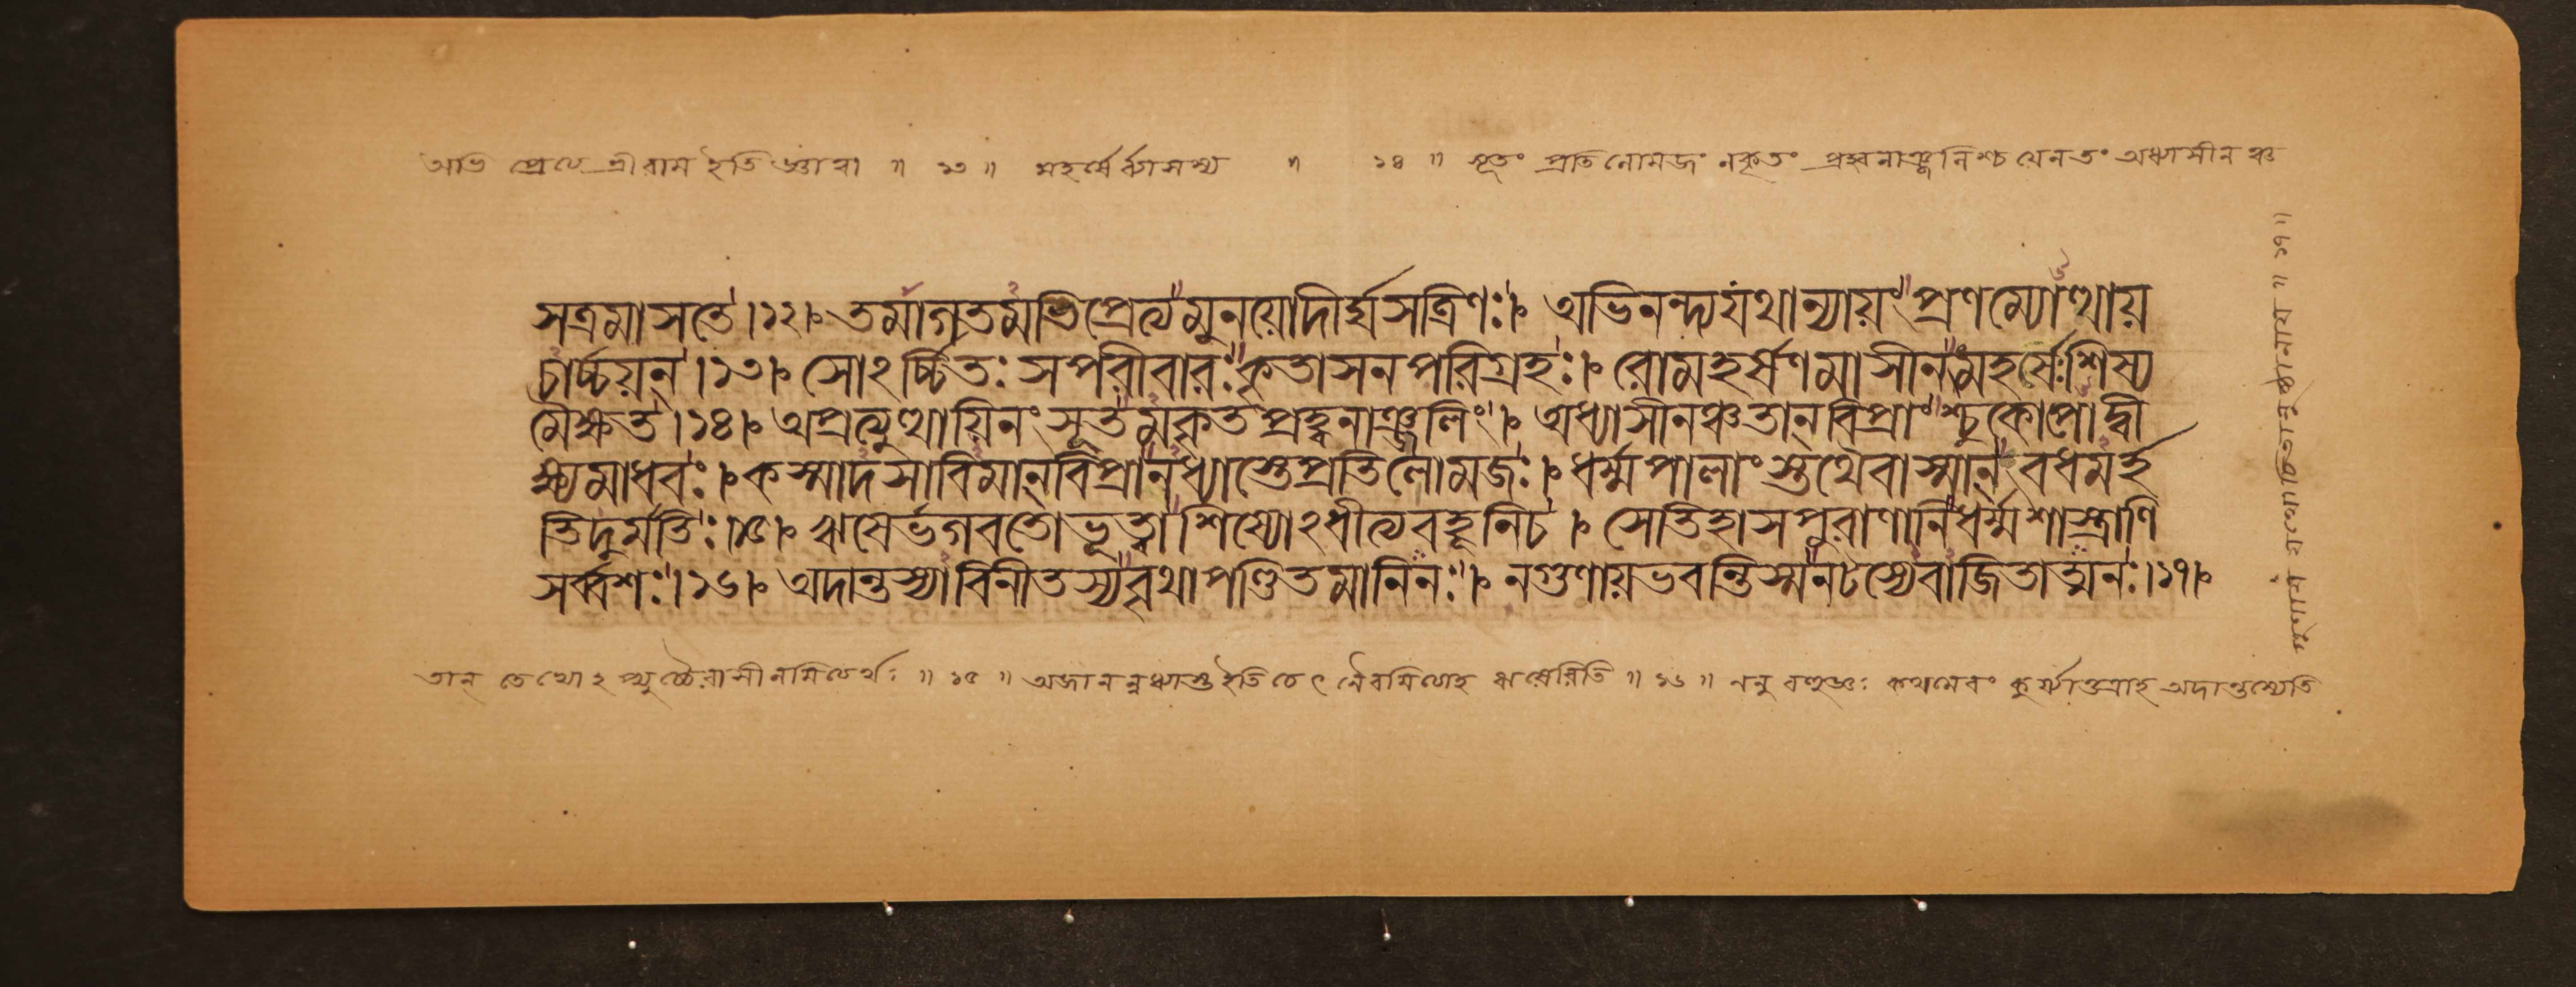 অভি প্রেত্য শ্রীরাম ইতি জ্ঞাত্বা ॥ ১৩ ॥ মহর্ষের্ব্যাসস্য ॥ ১৪ ॥ সূতং প্রতিলোমজং নকৃতং প্রহ্বনাঞ্জলিশ্চ যেনতং অধ্যাসীনঞ্চ
সত্রমাসতে।১২। তমাগতমভিপ্রেত্য মুনয়োদীর্ঘসত্রিণঃ। অভিনন্দ্যযথান্যায়ং প্রণম্যোত্থায়
চার্চ্চয়ন্।১৩। সোঽর্চ্চিতঃ সপরীবারঃকৃতাসনপরিগ্রহঃ। রোমহর্ষণমাসীনংমহর্ষেঃশিষ্য
মৈক্ষত।১৪। অপ্রত্যুত্থায়িনং সূতমকৃতপ্রহ্বনাঞ্জলিং। অধ্যাসীনঞ্চতান্ বিপ্রাংশ্চুকোপোদ্বী
ক্ষ্যমাধবঃ। কস্মাদসাবিমান্ বিপ্রানধ্যাস্তেপ্রতিলোমজঃ। ধর্ম্মপালাংস্তথৈবাস্মান্ বধমর্হ
তিদুর্মতিঃ।১৫। ঋষের্ভগবতোভূত্বা শিষ্যোঽধীত্যবহূনিচ। সেতিহাসপুরাণানিধর্ম্মশাস্ত্রাণি
সর্ব্বশঃ।১৬। অদান্তস্যাবিনীতস্যবৃথাপণ্ডিতমানিনঃ। নগুণায়ভবন্তিস্মনটস্যেবাজিতাত্মনঃ।১৭।
তান্ তেভ্যোঽপ্যুচ্চৈরাসীনমিত্যর্থঃ ॥ ১৫ ॥ অজানন্নধ্যাস্ত ইতি চেৎ নৈবমিত্যাহ ঋষেরিতি ॥ ১৬ ॥ ননু বহুজ্ঞঃ কথমেবং কুর্য্যাত্তত্রাহ অদান্তস্যেতি